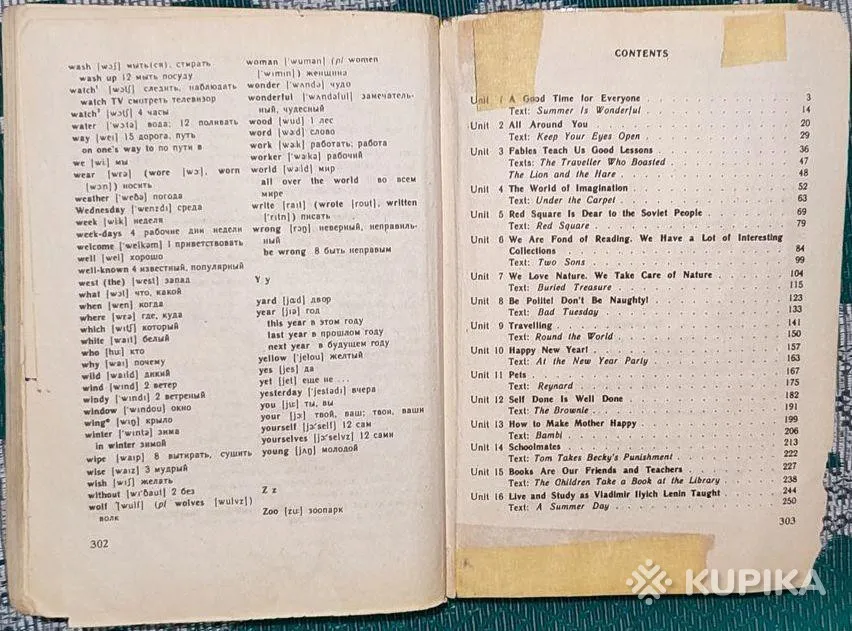 wash [wɔʃ] мыть(ся), стирать
wash up 12 мыть посуду
watch¹ [wɔtʃ] следить, наблюдать
watch TV смотреть телевизор
watch² [wɔtʃ] 4 часы
water ['wɔtə] вода; 12 поливать
way [wei] 15 дорога, путь
on one's way to по пути в
we [wi:] мы
wear [wɛə] (wore [wɔ:], worn
[wɔ:n]) носить
weather ['weðə] погода
Wednesday ['wenzdi] среда
week [wi:k] неделя
week-days 4 рабочие дни недели
welcome ['welkəm] 1 приветствовать
well [wel] хорошо
well-known 4 известный, популярный
west (the) [west] запад
what [wɔt] что, какой
when [wen] когда
where [wɛə] где, куда
which [wɪtʃ] который
white [waɪt] белый
who [hu:] кто
why [waɪ] почему
wild [waɪld] дикий
wind [wɪnd] 2 ветер
windy ['wɪndɪ] 2 ветреный
window ['wɪndou] окно
wing* [wɪŋ] крыло
winter ['wɪntə] зима
in winter зимой
wipe [waɪp] 8 вытирать, сушить
wise [waɪz] 3 мудрый
wish [wɪʃ] желать
without [wɪ'ðaut] 2 без
wolf [wulf] (pl wolves [wulvz])
волк
302
woman ['wumən] (pl women
['wɪmɪn]) женщина
wonder ['wʌndə] чудо
wonderful ['wʌndəful] замечатель-
ный, чудесный
wood [wud] 1 лес
word [wə:d] слово
work [wə:k] работать; работа
worker ['wə:kə] рабочий
world [wə:ld] мир
all over the world во всем
мире
write [raɪt] (wrote [rout], written
['rɪtn]) писать
wrong [rɔŋ] неверный, неправиль-
ный
be wrong 8 быть неправым
Y y
yard [jɑ:d] двор
year [jɪə] год
this year в этом году
last year в прошлом году
next year в будущем году
yellow ['jelou] желтый
yes [jes] да
yet [jet] еще не ...
yesterday ['jestədɪ] вчера
you [ju:] ты, вы
your [jɔ:] твой, ваш; твои, ваши
yourself [jɔ:'self] 12 сам
yourselves [jɔ:'selvz] 12 сами
young [jʌŋ] молодой
Z z
Zoo [zu:] зоопарк
CONTENTS
Unit 1 A Good Time for Everyone . . . . . . . . . . 3
Text: Summer Is Wonderful . . . . . . . . . . 14
Unit 2 All Around You . . . . . . . . . . 20
Text: Keep Your Eyes Open . . . . . . . . . . 29
Unit 3 Fables Teach Us Good Lessons . . . . . . . . . . 36
Texts: The Traveller Who Boasted . . . . . . . . . . 47
The Lion and the Hare . . . . . . . . . . 48
Unit 4 The World of Imagination . . . . . . . . . . 52
Text: Under the Carpet . . . . . . . . . . 63
Unit 5 Red Square Is Dear to the Soviet People . . . . . . . . . . 69
Text: Red Square . . . . . . . . . . 79
Unit 6 We Are Fond of Reading. We Have a Lot of Interesting
Collections . . . . . . . . . . 84
Text: Two Sons . . . . . . . . . . 99
Unit 7 We Love Nature. We Take Care of Nature . . . . . . . . . . 104
Text: Buried Treasure . . . . . . . . . . 115
Unit 8 Be Polite! Don't Be Naughty! . . . . . . . . . . 123
Text: Bad Tuesday . . . . . . . . . . 133
Unit 9 Travelling . . . . . . . . . . 141
Text: Round the World . . . . . . . . . . 150
Unit 10 Happy New Year! . . . . . . . . . . 157
Text: At the New Year Party . . . . . . . . . . 163
Unit 11 Pets . . . . . . . . . . 167
Text: Reynard . . . . . . . . . . 175
Unit 12 Self Done Is Well Done . . . . . . . . . . 182
Text: The Brownie . . . . . . . . . . 191
Unit 13 How to Make Mother Happy . . . . . . . . . . 199
Text: Bambi . . . . . . . . . . 206
Unit 14 Schoolmates . . . . . . . . . . 213
Text: Tom Takes Becky's Punishment . . . . . . . . . . 222
Unit 15 Books Are Our Friends and Teachers . . . . . . . . . . 227
Text: The Children Take a Book at the Library . . . . . . . . . . 238
Unit 16 Live and Study as Vladimir Ilyich Lenin Taught . . . . . . . . . . 244
Text: A Summer Day . . . . . . . . . . 250
303
KUPIKA